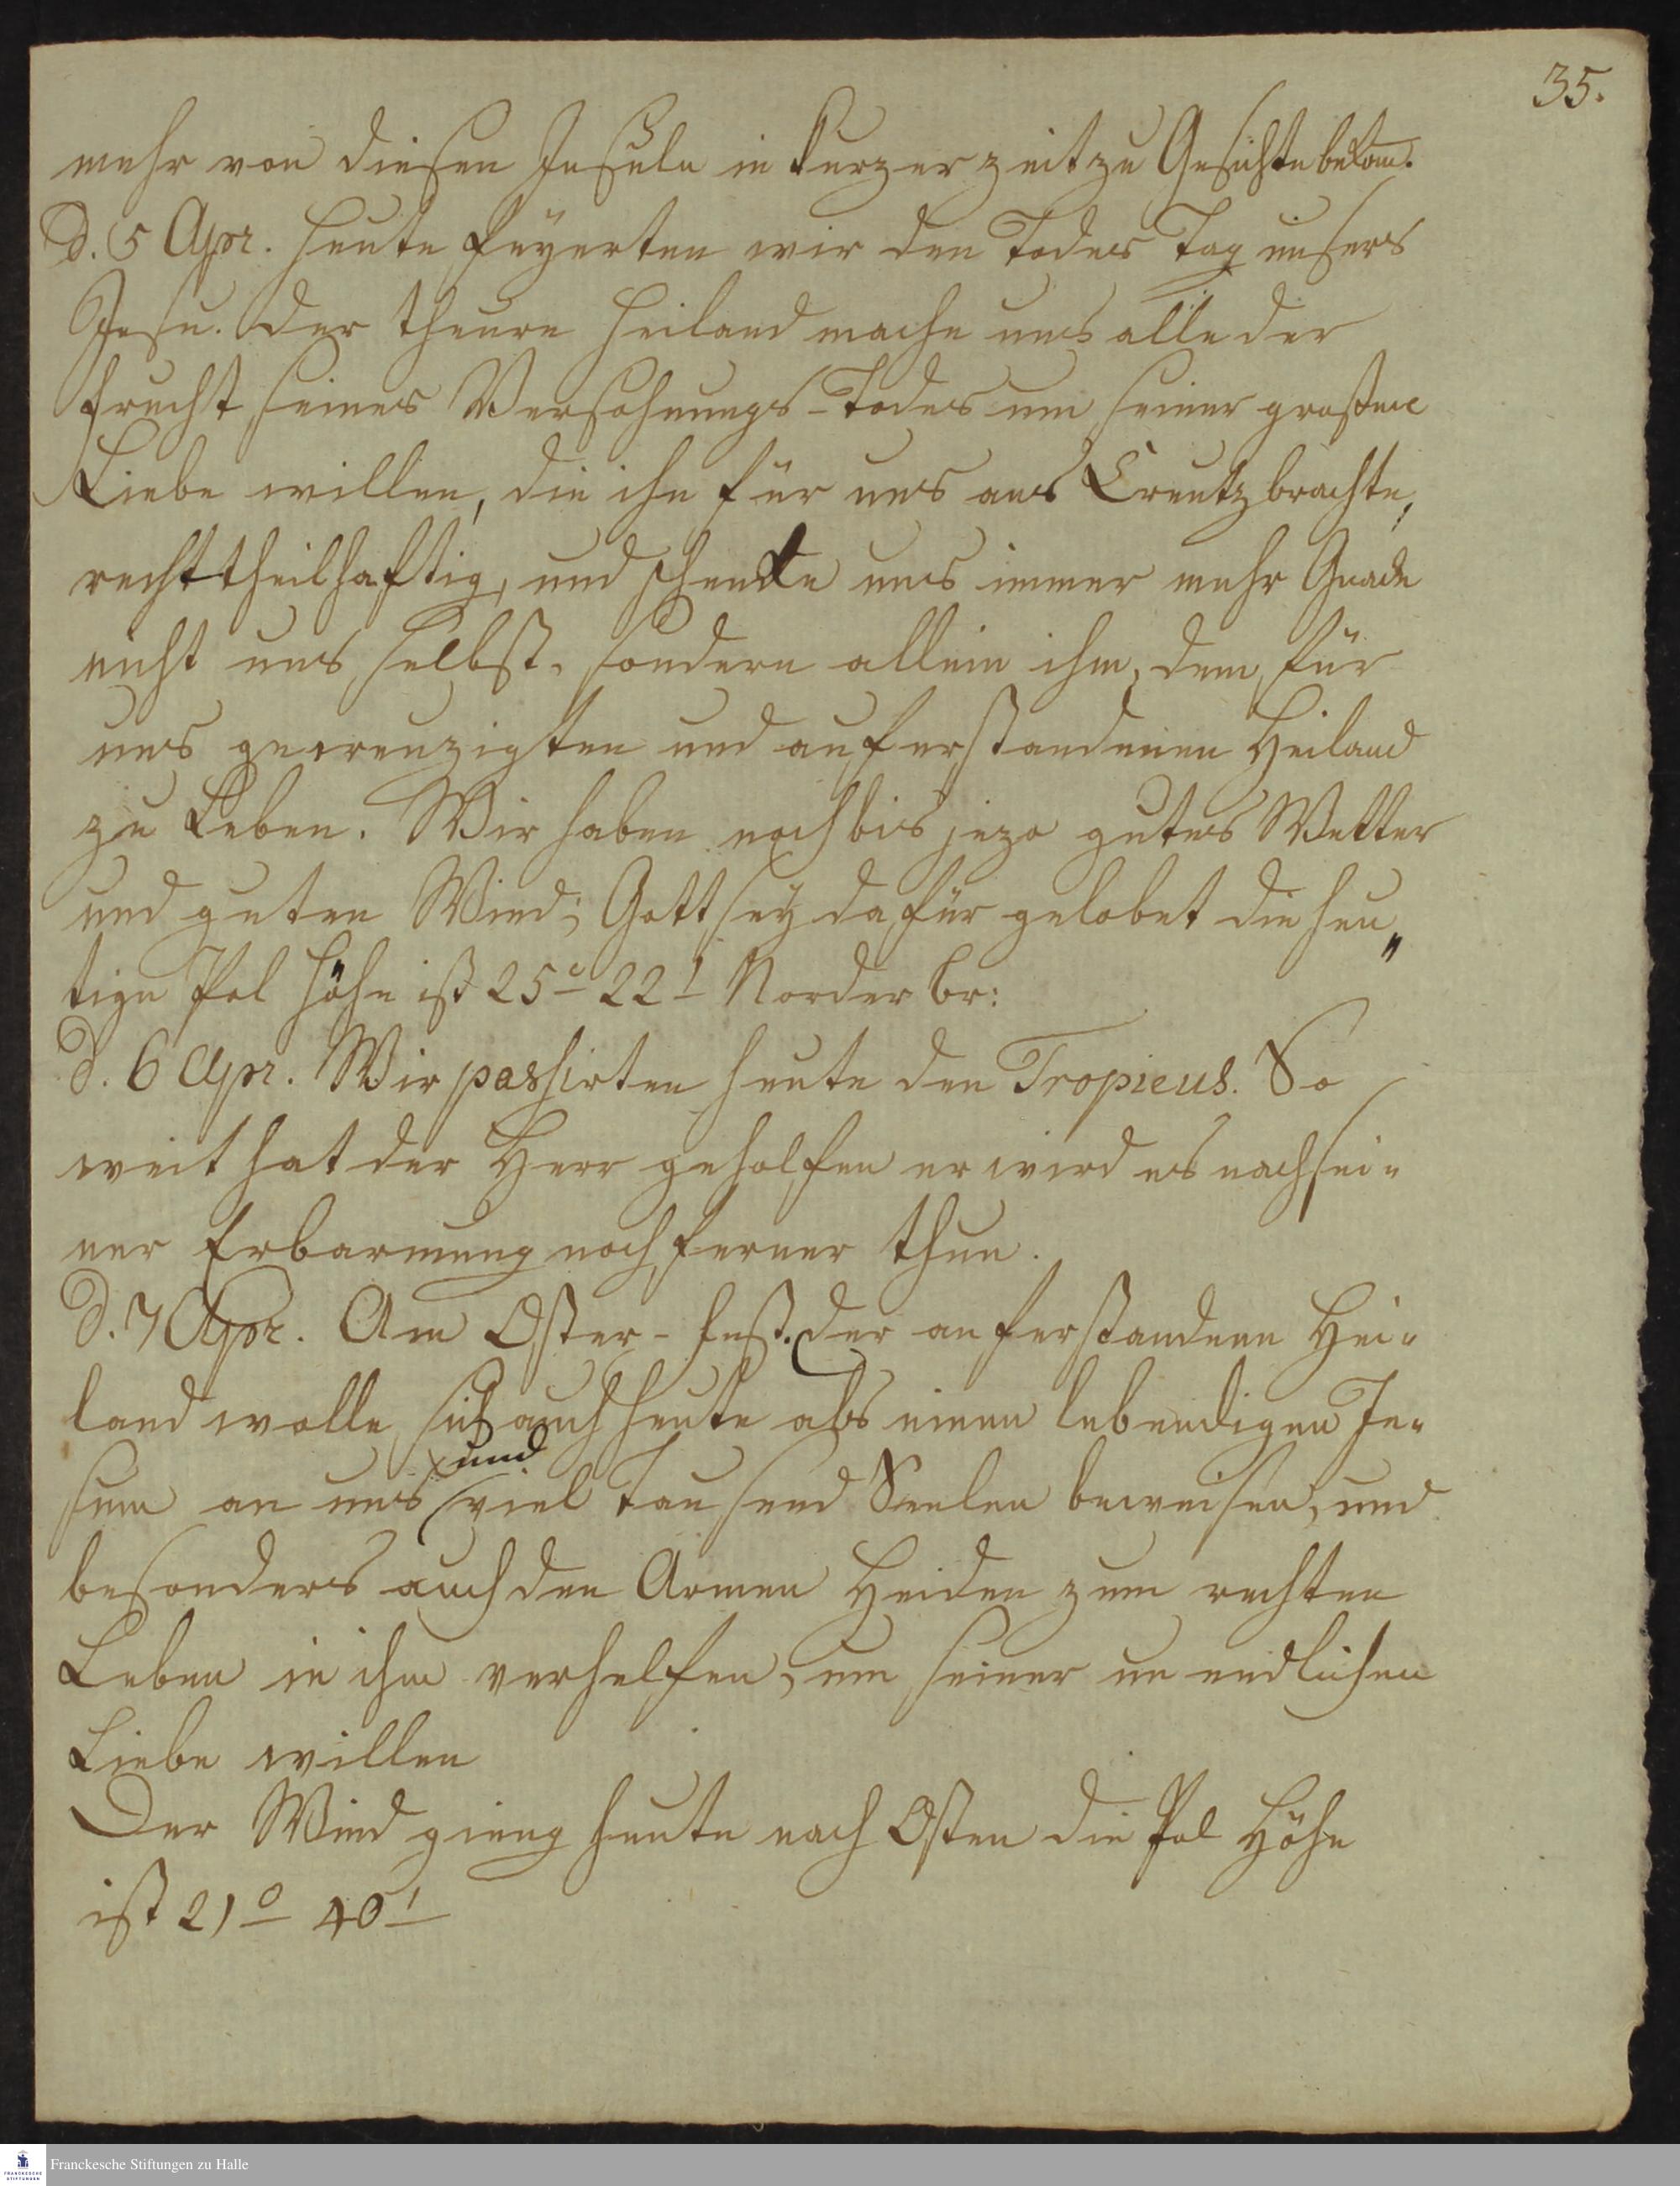 35.
mehr von diesen Insuln in kurzer zeit zu Gesichte bekom̅.
D. 5 Apr. heute feÿerten wir den Todes Tag unsers
Jesu. Der theure Heiland mache uns alle der
frucht seines Versohnungs-Todes um seiner großen
Liebe willen, die ihn für uns ans Creutz brachte,
recht theilhaftig, und schenke uns immer mehr Gnade
nicht uns selbst, sondern allein ihm, dem für
uns gecreuzigten und auferstandenen Heiland
zu Leben. Wir haben noch bis jezo gutes Wetter
und guten Wind; Gott seÿ dafür gelobet die heu„
tige Pol Höhe ist 25° 22' Norder br:
D. 6 Apr. Wir passirten heute den Tropicus. So
weit hat der Herr geholfen er wird es nach sei-
ner Erbarmung noch ferner thun.
D. 7 Apr. Am Oster-fest. der auferstandene Hei-
land wolle sich auch heute als einen lebendigen Je-
und
sum an uns viel Tausend Seelen beweisen, und
besonders auch den Armen Heiden zum rechten
Leben in ihm verhelfen, um seiner un endlichen
Liebe willen
Der Wind gieng heute nach Osten die Pol Höhe
ist 21° 40'
Franckesche Stiftungen zu Halle
FRANCKESCHE
STIFTUNGEN